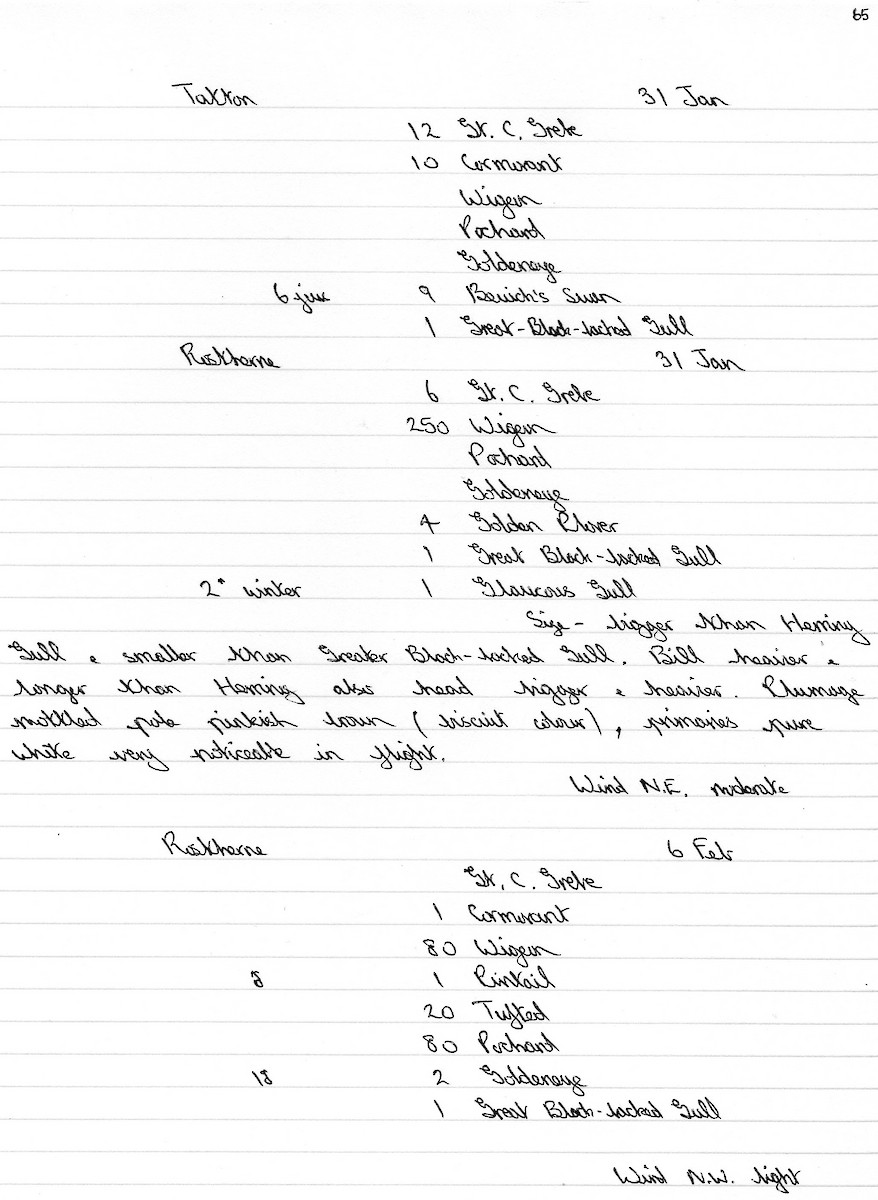 65
Tatton 31 Jan
12 Gt. C. Grebe
10 Cormorant
Wigeon
Pochard
Goldeneye
6 juv 9 Bewick's Swan
1 Great-Black-backed Gull
Rostherne 31 Jan
6 Gt. C. Grebe
250 Wigeon
Pochard
Goldeneye
4 Golden Plover
1 Great Black-backed Gull
2° winter 1 Glaucous Gull
Size - bigger than Herring
Gull & smaller than Greater Black-backed Gull. Bill heavier &
longer than Herring also head bigger & heavier. Plumage
mottled pale pinkish brown (biscuit colour), primaries pure
white very noticeable in flight.
Wind N.E. moderate
Rostherne 6 Feb
Gt. C. Grebe
1 Cormorant
80 Wigeon
♂ 1 Pintail
20 Tufted
80 Pochard
1♂ 2 Goldeneye
1 Great Black-backed Gull
Wind N.W. light